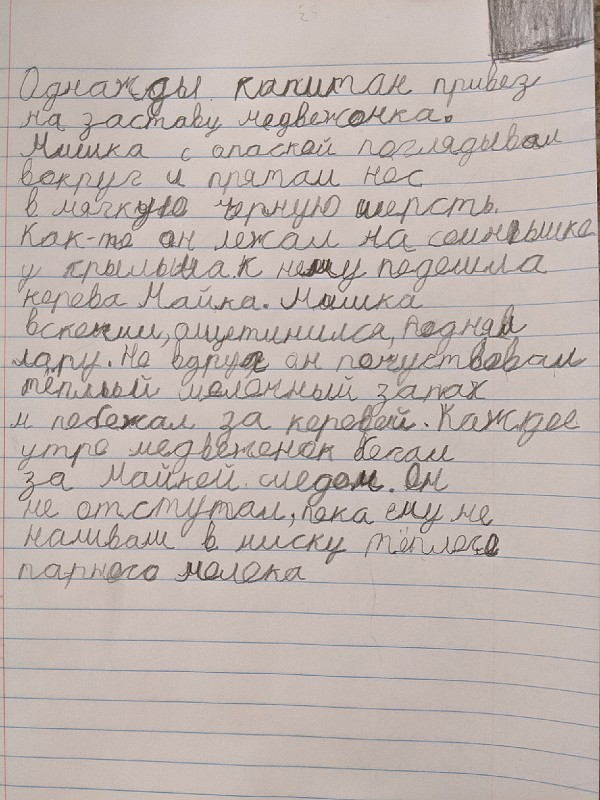 Однажды капитан привез
на заставу медвежонка.
Мишка с опаской поглядывал
вокруг и прятал нос
в мягкую черную шерсть.
Как-то он лежал на солнышке
у крыльца. К нему подошла
корова Майка. Мишка
вскочил, ощетинился, поднял
лапу. Но вдруг он почуствовал
тёплый молочный запах
и побежал за коровой. Каждое
утро медвеженок бегал
за Майкой следом. Он
не отступал, пока ему не
наливали в миску тёплого
парного молока